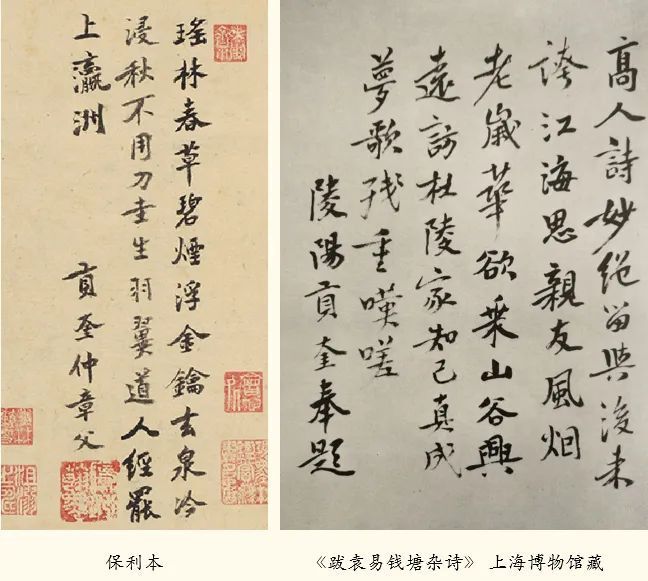 瑤林春草碧煙浮金鑰玄泉冷
浸秋不用刀圭生羽翼道人經罷
上瀛洲
貢奎仲章父
高人詩妙絕留與後来
誇江海思親友風烟
老歲華欲乗山谷興
遠訪杜陵家知己真成
夢歌残重嘆嗟
陵陽貢奎奉題
保利本
《跋袁易钱塘杂诗》 上海博物馆藏